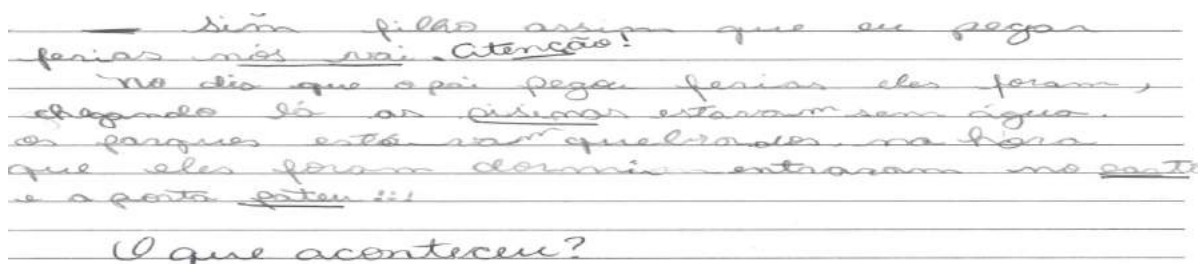 — sim filho assim que eu pegar
ferias nós vai. Atenção!
no dia que o pai pegou ferias eles foram,
chegando lá as pisinas estavam sem água.
os parques estavam quebrados na hora
que eles foram dormir entraram no
e a porta bateu :::
O que aconteceu?